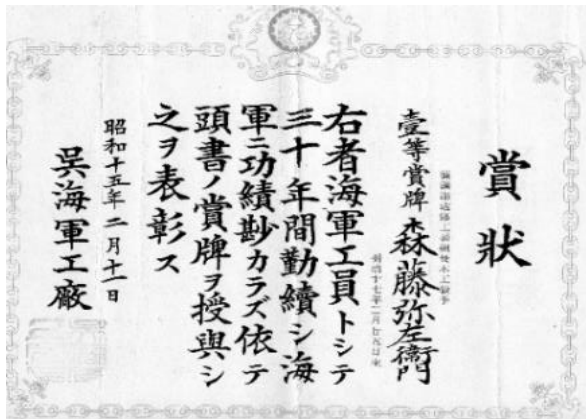 賞狀
壹等賞牌 森藤弥左衛門
右者海軍工員トシテ
三十年間勤續シ海
軍ニ功績尠カラズ依テ
頭書ノ賞牌ヲ授與シ
之ヲ表彰ス
昭和十五年二月十一日
吳海軍工廠